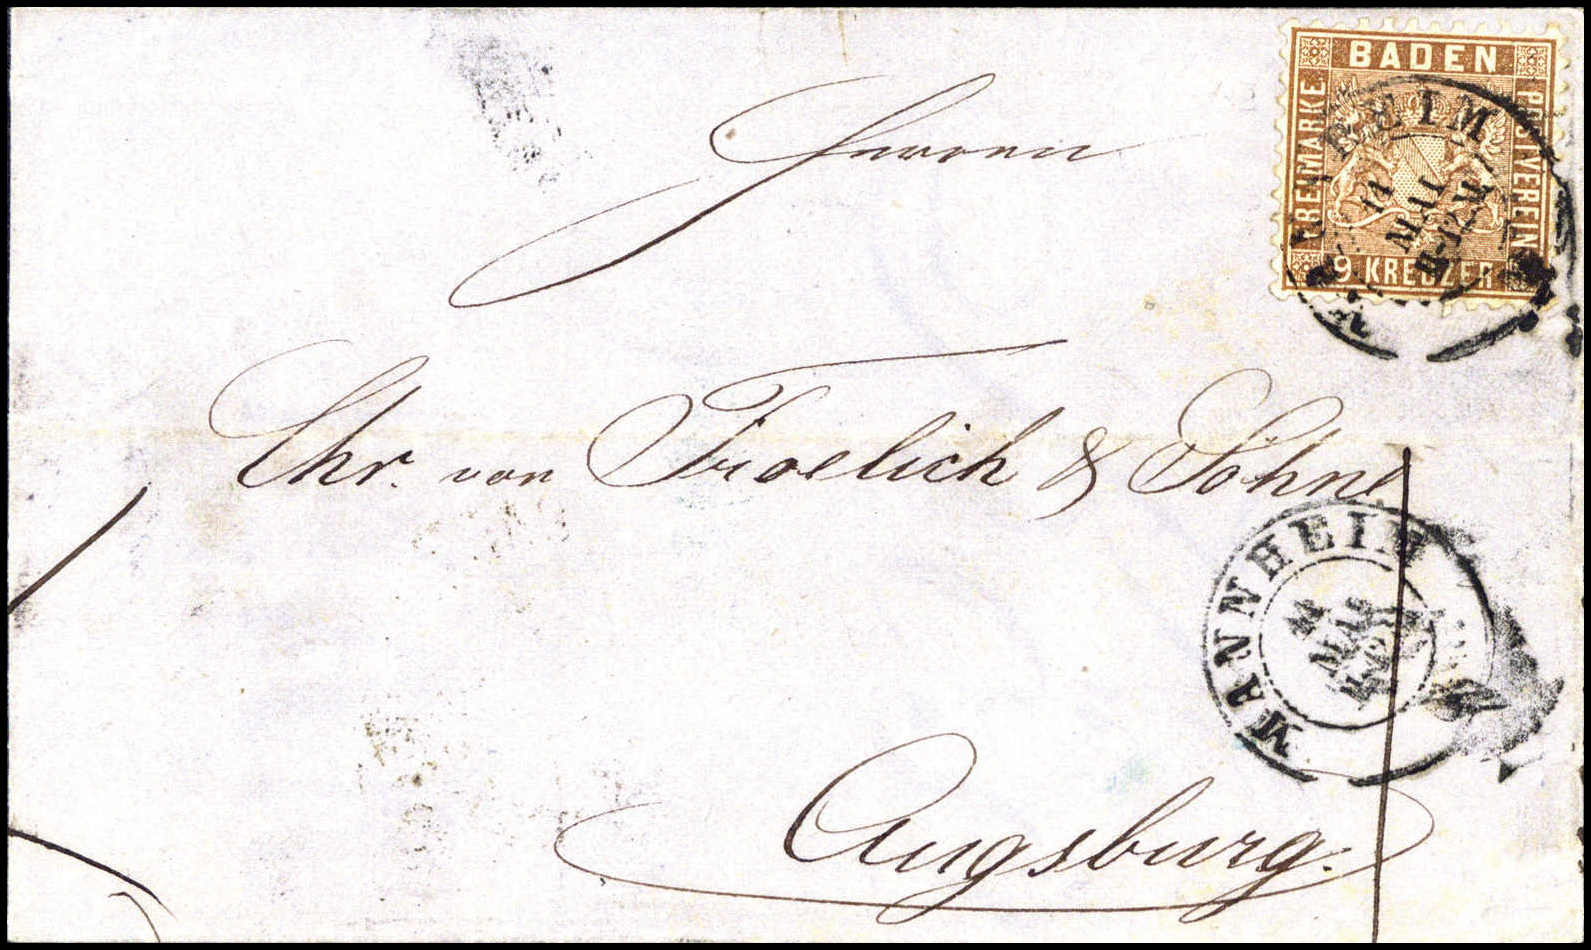 BADEN
FREIMARKE
POSTVEREIN
9 KREUZER
HEIM
MAI
Herren
Chr. von Froelich & Söhne
MANNHEIM
Augsburg.